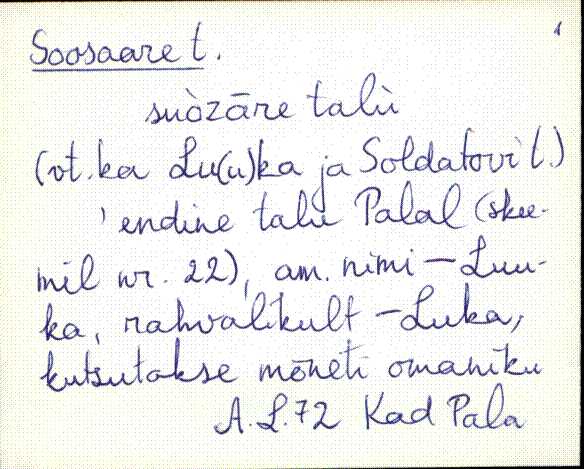 1
Soosaare t.
suòzāre talù
(vt. ka Lu(u)ka ja Soldatovi t.)
'endine talu Palal (skee-
mil nr. 22), am. nimi – Luu-
ka, rahvalikult – Luka,
kutsutakse mōneti omaniku
A.L.72 Kad Pala